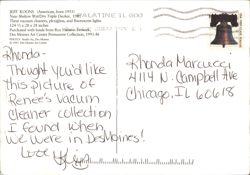 JEFF KOONS (American, born 1955)
New Shelton Wet/Dry Triple Decker, 1981
Three vacuum cleaners, plexiglas, and fluorescent lights
124½ x 28 x 28 inches
Purchased with funds from
Des Moines Art Center Permanent Collection, 1991.46
PALATINE IL 600
Rhonda-
Thought you'd like
this picture of
Renee's vacuum
cleaner collection
I found when
we were in DesMoines!
Love
Rhonda Marcucci
4114 N. Campbell Ave
Chicago, IL 60618